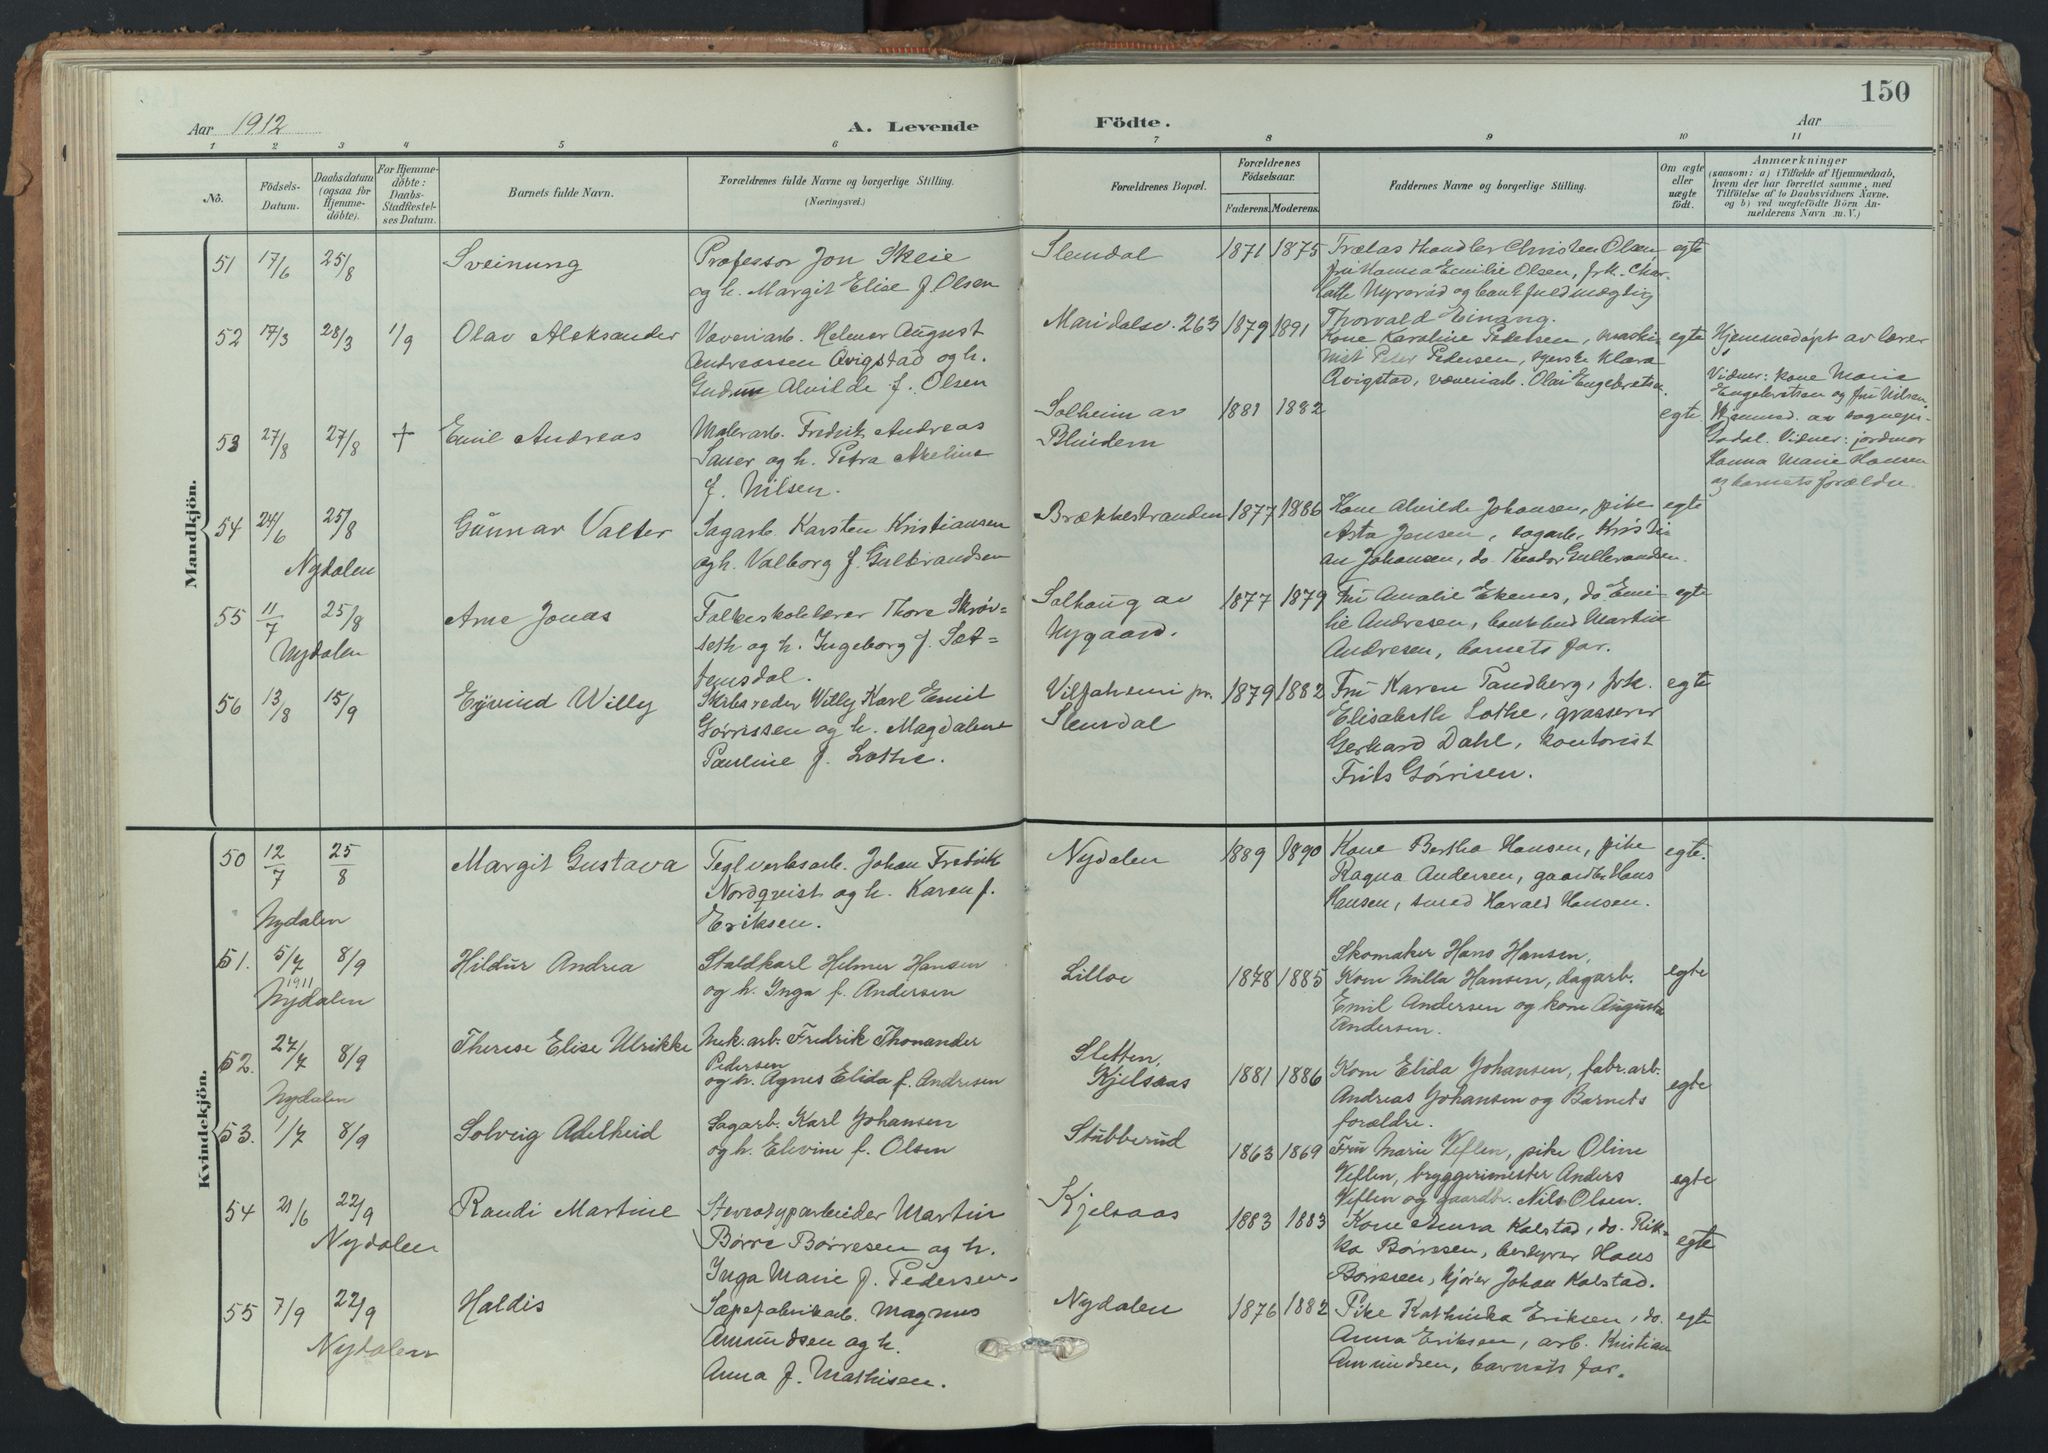 150
Aar 1912
A. Levende
Födte.
Aar
1 2 3 4 5 6 7 8 9 10 11
No.
Födsels-
Datum.
Daabsdatum
(ogsaa for
Hjemme-
döbte).
For Hjemme-
döbte:
Daabs-
Stadfæstel-
ses Datum.
Barnets fulde Navn.
Forældrenes fulde Navne og borgerlige Stilling.
(Næringsvei.)
Forældrenes Bopæl.
Forældrenes
Födselsaar.
Faderens. Moderens.
Faddernes Navne og borgerlige Stilling.
Om ægte
eller
uægte
födt.
Anmærkninger
(saasom: a) i Tilfælde af Hjemmedaab,
hvem der har forrettet samme, med
Tilföielse af to Daabsvidners Navne,
og b) ved uægtefödte Börn An-
melderens Navn m. V.)
Mandkjön.
51 17/6 25/8 Sveinung
Professor Jon Skeie
og h. Margit Elise f. Olsen
Slemdal 1871 1875
Trælasthandler Christen Olsen,
fru Hansa Emilie Olsen, frk. Char-
lotte Nyrerød og bankfuldmægtig
Thorvald Einang.
egte
52 17/3 28/3 1/9 Olav Aleksander
Væveriarb. Helmer August
Andreassen Qvigstad og h.
Gudrun Alvilde f. Olsen
Maridalsv. 263 1879 1891
Kone Karoline Pedersen, maski-
nist Peter Pedersen, syerske Klara
Qvigstad, væveriarb. Olai Engebretsen.
egte
Hjemmedøpt av lærer
Vidner: kone Marie
Engebretsen og fru Nilsen.
53 27/8 27/8 † Emil Andreas
Malerarb. Fredrik Andreas
Sauer og h. Petra Akeline
f. Nilsen.
Solheim av
Blindern
1881 1882
egte.
Hjemmed. av sognepr.
Godal. Vidner: jordmor
Hanna Marie Hansen
og barnets forældre.
54 24/6 25/8 Gunnar Valter
Nydalen
Sagarb. Karsten Kristiansen
og h. Valborg f. Gulbrandsen
Brækkestranden 1877 1886
Kone Alvilde Johansen, pike
Asta Jensen, sagarb. Kristi-
an Johansen, do. Theodor Gulbrandsen.
egte
55 11/7 25/8 Arne Jonas
Nydalen
Folkeskolelærer Thore Skrøv-
seth og h. Ingeborg f. Sæt-
rensdal.
Solhaug av
Nygaard.
1877 1879
Fru Amalie Ekenes, do Emi-
lie Andresen, bankbud Martin
Andresen, barnets far.
egte
56 13/8 15/9 Eyvind Willy
Skibsreder Willy Karl Emil
Gørrissen og h. Magdalene
Pauline f. Lothe.
Slemdal
1879 1882
Fru Karen Tandberg, frk.
Elisabeth Lothe, grosserer
Gerhard Dahl, kontorist
Frits Gørrisen.
egte
Kvindekjön.
50 12/7 25/8 Margit Gustava
Nydalen
Teglverksarb. Johan Fredrik
Nordqvist og h. Karen f.
Eriksen.
Nydalen 1889 1890
Kone Bertha Hansen, pike
Ragna Andersen, gaardbr. Hans
Hansen, smed Harald Hansen.
egte.
51. 5/7 1911 8/9 Hildur Andrea
Nydalen
Staldkarl Helmer Hansen
og h. Inga f. Andersen
Lilloe 1878 1885
Skomaker Hans Hansen,
Kone Milla Hansen, dagarb.
Emil Andersen og kone Augusta
Andersen.
egte
52. 27/7 8/9 Therese Elise Ulrikke
Nydalen
Mek. arb. Fredrik Thonander
Pedersen
og h. Agnes Elida f. Andresen
Sletten,
Kjelsaas
1881 1886
Kone Elida Johansen, fabr. arb.
Andreas Johansen og Barnets
forældre.
egte
53. 1/7 8/9 Solveig Adelheid
Sagarb. Karl Johansen
og h. Elevine f. Olsen
Stubberud 1863 1869
Fru Marie Veflen, pike Oline
Veflen, bryggerimester Anders
Veflen og gaardbr. Nils Olsen.
egte
54 21/6 22/9 Randi Martine
Nydalen
Stereotyparbeider Martin
Børre Børresen og h.
Inga Marie f. Pedersen.
Kjelsaas 1883 1883
Kone Anna Kolstad, do. Rik-
ka Børresen, bestyrer Hans
Børresen, kjører Johan Kolstad.
egte
55 7/9 22/9 Haldis
Nydalen
Sæpefabrikarb. Magnus
Amundsen og h.
Anna f. Mathisen.
Nydalen 1876 1882
Pike Kathinka Eriksen, do.
Anna Eriksen, arb. Kristian
Amundsen, barnets far.
egte